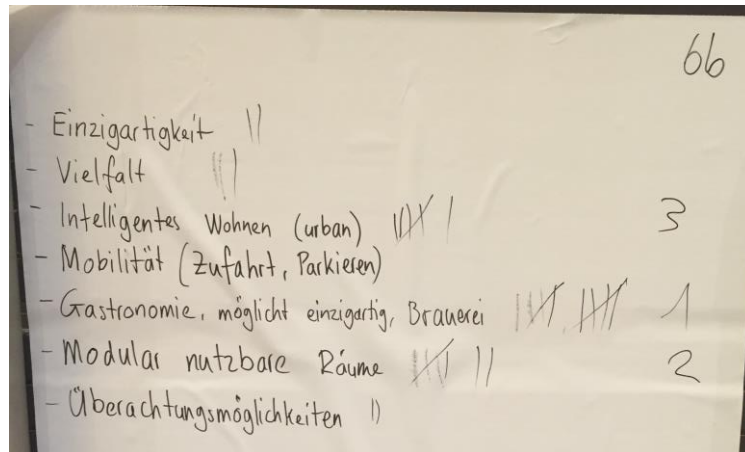 66
- Einzigartigkeit ||
- Vielfalt |||
- Intelligentes Wohnen (urban) 𝍸 | 3
- Mobilität (Zufahrt, Parkieren)
- Gastronomie, möglicht einzigartig, Brauerei 𝍸 𝍸 1
- Modular nutzbare Räume 𝍸 || 2
- Überachtungsmöglichkeiten ||